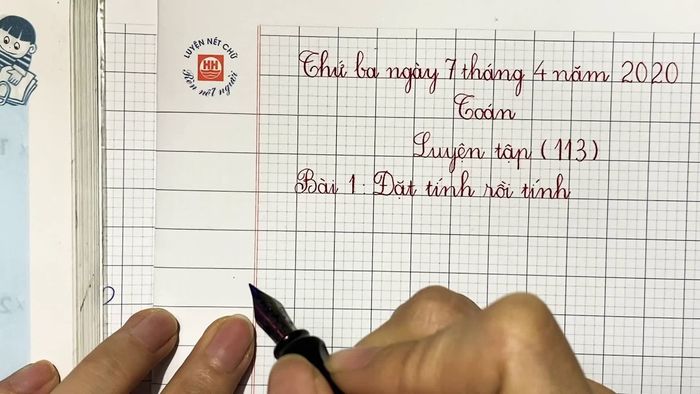 LUYỆN NÉT CHỮ
HH
Rèn nết người
Thứ ba ngày 7 tháng 4 năm 2020
Toán
Luyện tập (113)
Bài 1: Đặt tính rồi tính